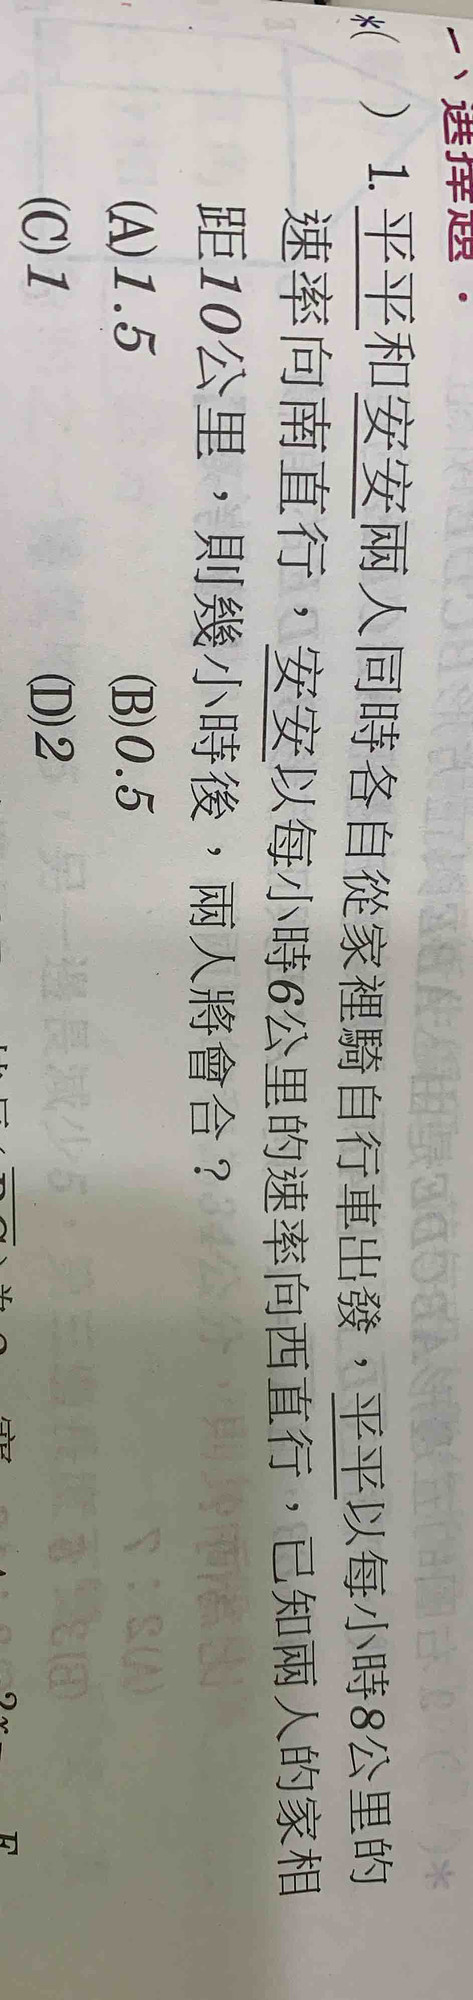 一、選擇題：
*(　　) 1. 平平和安安兩人同時各自從家裡騎自行車出發，平平以每小時8公里的
速率向南直行，安安以每小時6公里的速率向西直行，已知兩人的家相
距10公里，則幾小時後，兩人將會合？
(A)1.5　(B)0.5
(C)1　(D)2